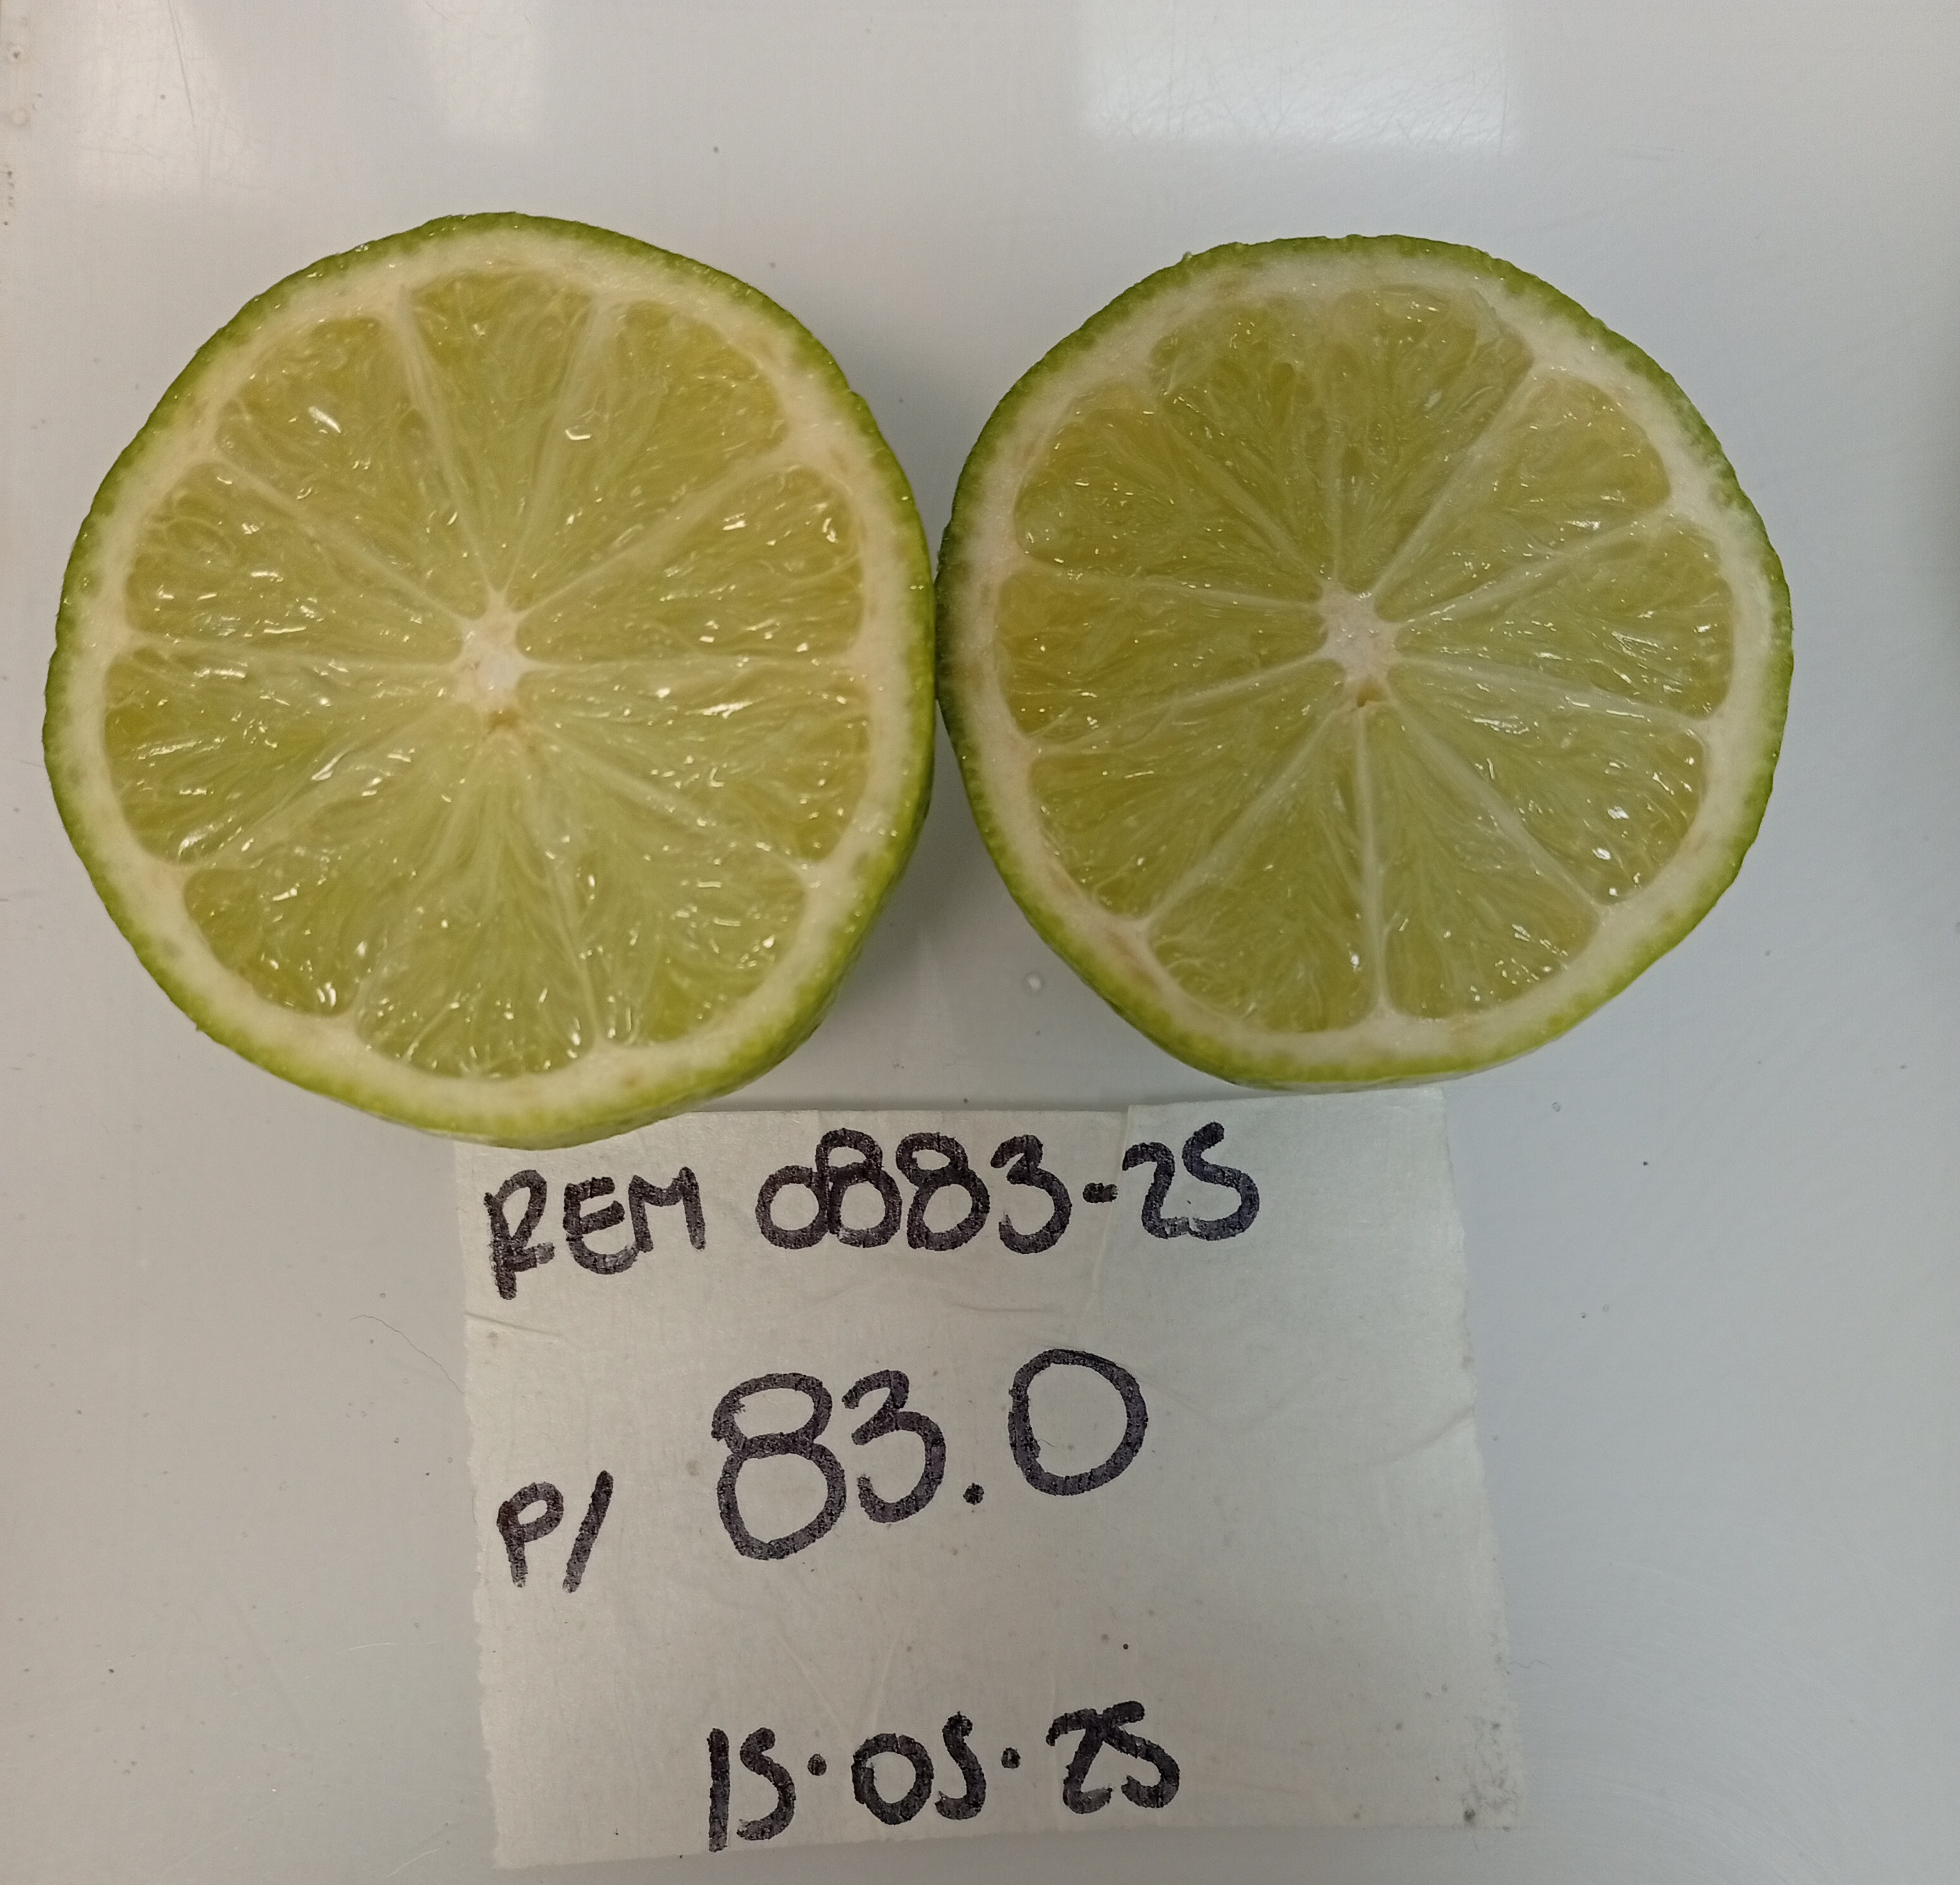 REM 0883-25
P/ 83.0
15.05.25